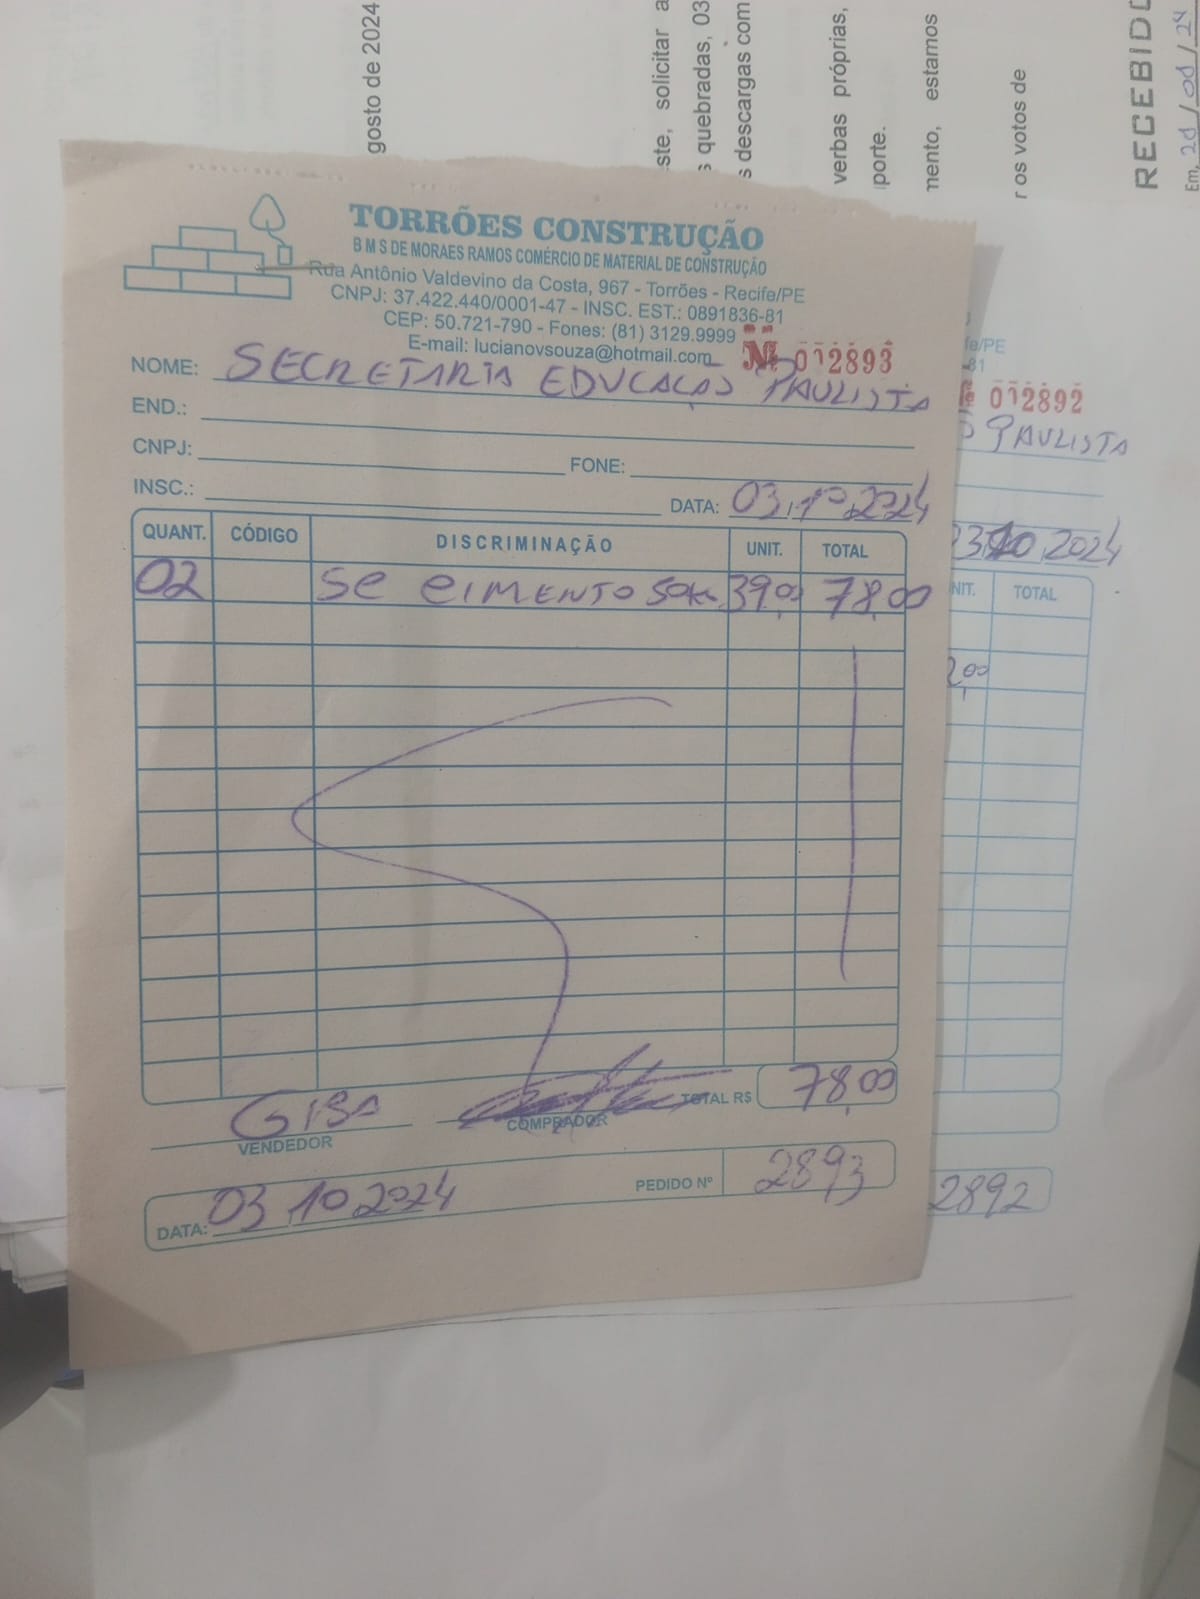 gosto de 2024
ste, solicitar a
s quebradas, 03
s descargas com
verbas próprias,
porte.
mento, estamos
r os votos de
RECEBIDO
Em,
TORRÕES CONSTRUÇÃO
B M S DE MORAES RAMOS COMÉRCIO DE MATERIAL DE CONSTRUÇÃO
Rua Antônio Valdevino da Costa, 967 - Torrões - Recife/PE
CNPJ: 37.422.440/0001-47 - INSC. EST.: 0891836-81
CEP: 50.721-790 - Fones: (81) 3129.9999
E-mail: lucianovsouza@hotmail.com Nº 012893
NOME: SECRETARIA EDUCAÇÃO PAULISTA
END.:
CNPJ: FONE:
INSC.: DATA: 03,10,2024
QUANT. CÓDIGO DISCRIMINAÇÃO UNIT. TOTAL
02 SC CIMENTO 50K 39,00 78,00
GIBA TOTAL R$ 78,00
VENDEDOR COMPRADOR
DATA: 03,10,2024 PEDIDO Nº 2893
fe/PE
81
012892
PAULISTA
2024
NIT. TOTAL
2,00
2892